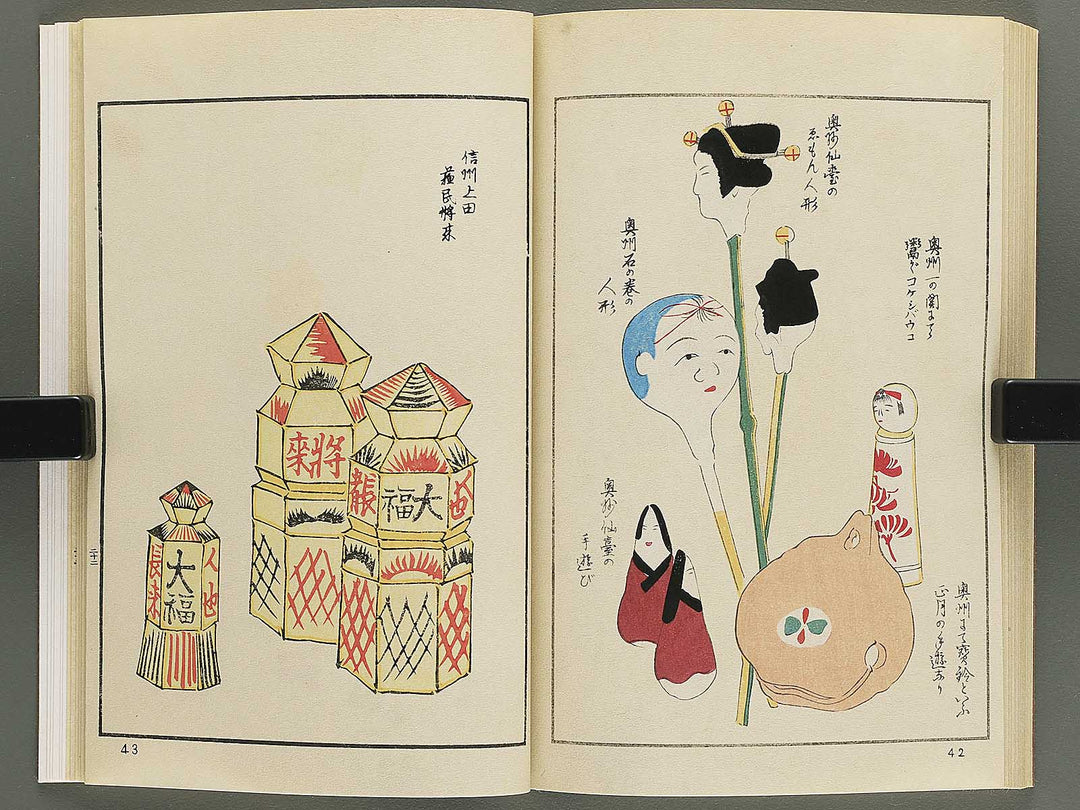 奥州仙臺の
ゑもん人形
奥州一の関にては
コケシバウコ
奥州石の巻の
人形
奥州仙臺の
手遊び
奥州にて寳鈴といふ
正月の手遊なり
42
信州上田
蘓民將来
將
來
大
福
大
福
人
也
長
来
43